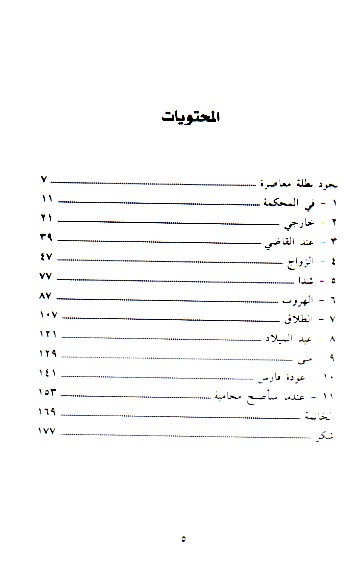 المحتويات
نجود بطلة معاصرة ٧
١ - في المحكمة ١١
٢ - خارجي ٢١
٣ - عند القاضي ٣٩
٤ - الزواج ٤٧
٥ - شدا ٧٧
٦ - الهروب ٨٧
٧ - الطلاق ١٠٧
٨ - عيد الميلاد ١٢١
٩ - منى ١٢٩
١٠ - عودة فارس ١٤١
١١ - عندما سأصبح محامية ١٥٣
الخاتمة ١٦٩
شكر ١٧٧
٥